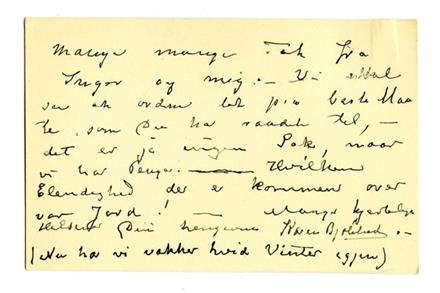 Mange mange Tak fra
Inger og mig. – Vi skal
se at ordne det paa beste Maa
te, som Du har raadet til, –
det er jo ingen Sak, naar
vi har Penge. — Hvilken
Elendighed der er kommen over
vor Jord! — Mange kjærlige
Hilsner Din hengivne
(Nu har vi vakker hvid Vinter igjen)